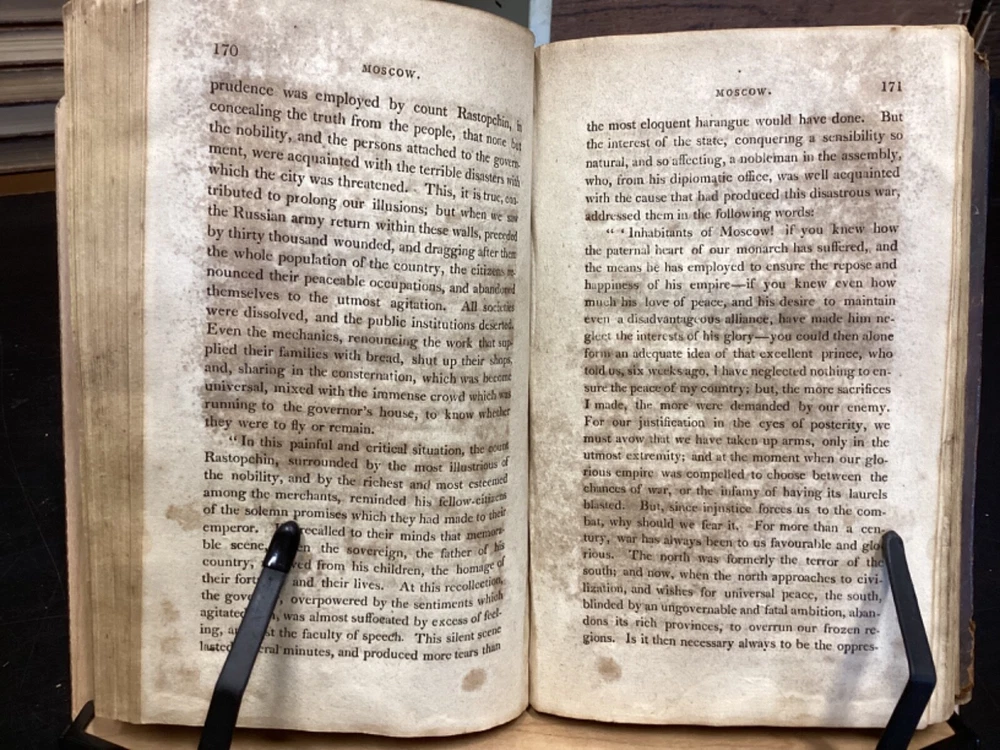 170
MOSCOW.
prudence was employed by count Rastopchin, in
concealing the truth from the people, that none but
the nobility, and the persons attached to the govern-
ment, were acquainted with the terrible disasters with
which the city was threatened. This, it is true, con-
tributed to prolong our illusions; but when we saw
the Russian army return within these walls, preceded
by thirty thousand wounded, and dragging after them
the whole population of the country, the citizens re-
nounced their peaceable occupations, and abandoned
themselves to the utmost agitation. All societies
were dissolved, and the public institutions deserted.
Even the mechanics, renouncing the work that sup-
plied their families with bread, shut up their shops,
and, sharing in the consternation, which was become
universal, mixed with the immense crowd which was
running to the governor's house, to know whether
they were to fly or remain.
“In this painful and critical situation, the count
Rastopchin, surrounded by the most illustrious of
the nobility, and by the richest and most esteemed
among the merchants, reminded his fellow-citizens
of the solemn promises which they had made to their
emperor. recalled to their minds that memora-
ble scene, the sovereign, the father of his
country, from his children, the homage of
their and their lives. At this recollection,
the overpowered by the sentiments which
agitated was almost suffocated by excess of feel-
ing, the faculty of speech. This silent scene
lasted minutes, and produced more tears than
MOSCOW.
171
the most eloquent harangue would have done. But
the interest of the state, conquering a sensibility so
natural, and so affecting, a nobleman in the assembly,
who, from his diplomatic office, was well acquainted
with the cause that had produced this disastrous war,
addressed them in the following words:
“‘Inhabitants of Moscow! if you knew how
the paternal heart of our monarch has suffered, and
the means he has employed to ensure the repose and
happiness of his empire—if you knew even how
much his love of peace, and his desire to maintain
even a disadvantageous alliance, have made him ne-
glect the interests of his glory—you could then alone
form an adequate idea of that excellent prince, who
told us, six weeks ago, I have neglected nothing to en-
sure the peace of my country; but, the more sacrifices
I made, the more were demanded by our enemy.
For our justification in the eyes of posterity, we
must avow that we have taken up arms, only in the
utmost extremity; and at the moment when our glo-
rious empire was compelled to choose between the
chances of war, or the infamy of having its laurels
blasted. But, since injustice forces us to the com-
bat, why should we fear it. For more than a cen-
tury, war has always been to us favourable and glo-
rious. The north was formerly the terror of the
south; and now, when the north approaches to civi-
lization, and wishes for universal peace, the south,
blinded by an ungovernable and fatal ambition, aban-
dons its rich provinces, to overrun our frozen re-
gions. Is it then necessary always to be the oppres-